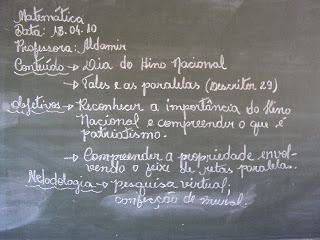 Matemática
Data: 13.04.10
Professora: Aldamir
Conteúdo → Dia do Hino Nacional
→ Tales e as paralelas (Descritor 29)
Objetivos → Reconhecer a importância do Hino
Nacional e compreender o que é
patriotismo.
→ Compreender a propriedade envol-
vendo o feixe de retas paralelas.
Metodologia → pesquisa virtual;
confecção de mural.